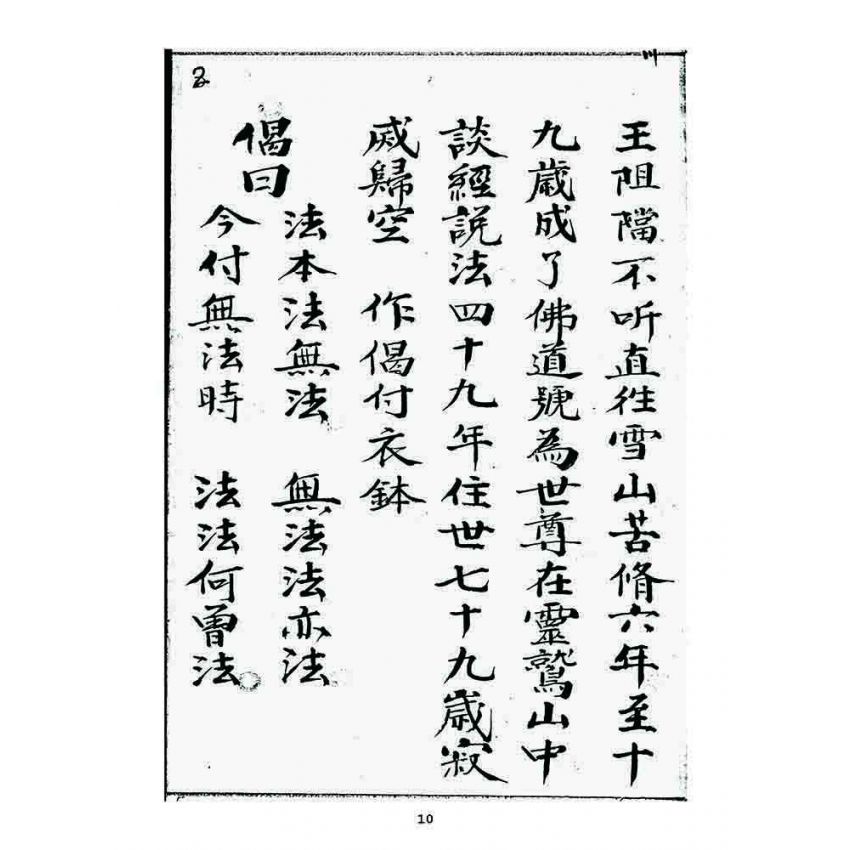 王阻擋不听直往雪山苦脩六年至十
九歲成了佛道號為世尊在靈鷲山中
談經說法四十九年住世七十九歲寂
烕歸空 作偈付衣鉢
偈曰
法本法無法 無法法亦法
今付無法時 法法何曾法
10